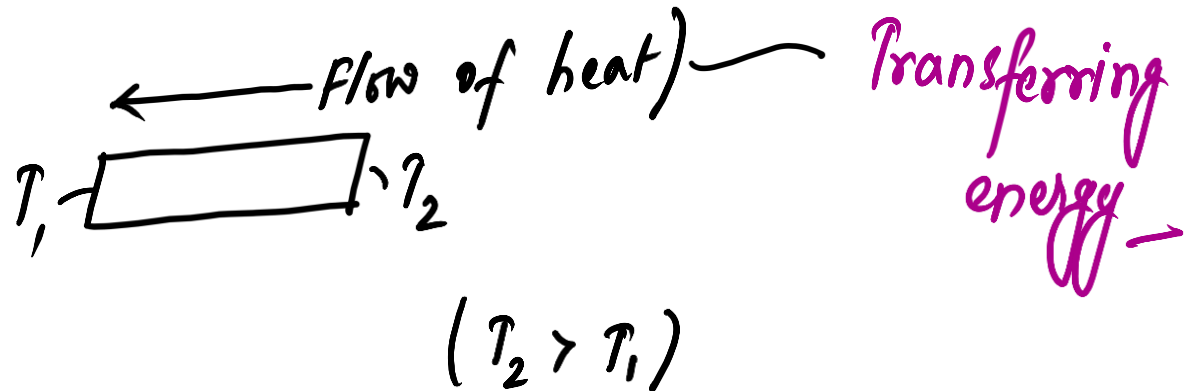 Flow of heat) Transferring
energy
T₁ T₂
(T₂ > T₁)